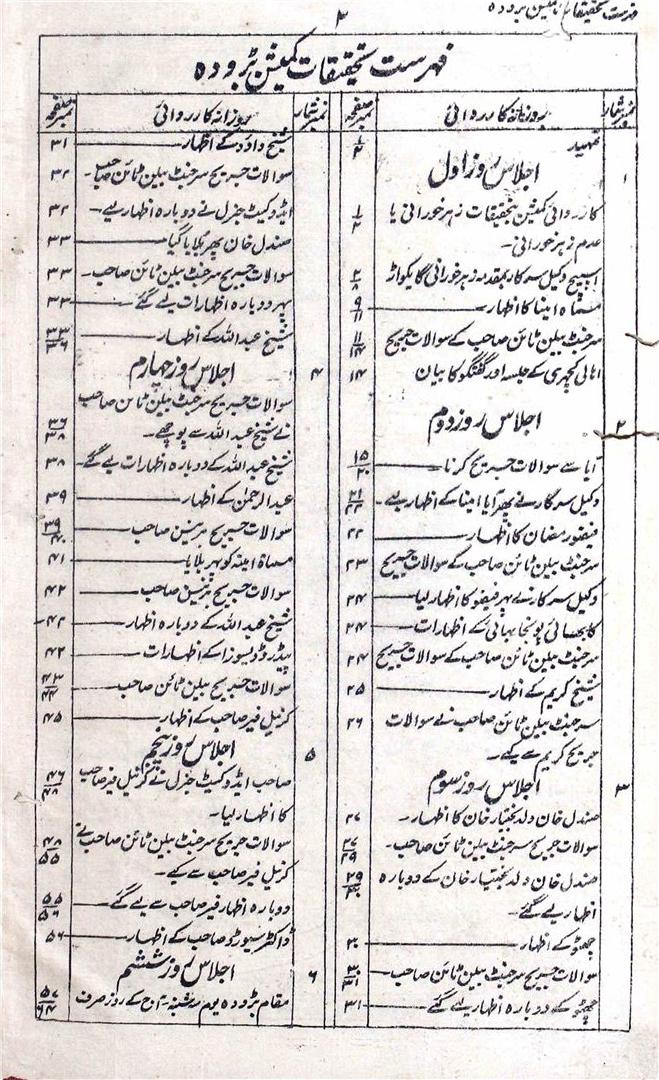 فہرست تحقیقات کمیشن بڑودہ
۳
فہرست تحقیقات کمیشن بڑودہ
نمبر شمار
روزانہ کارروائی
صفحہ نمبر
تمہید ۱/۲
۱ اجلاس روز اول
کارروائی کمیشن تحقیقات زہر خورانی یا ۱/۲
عدم زہر خورانی۔
اسپیچ وکیل سرکار بمقدمہ زہر خورانی گایکواڑ ۲/۸
مسماۃ امینا کا اظہار ۹/۱۱
سرجنٹ بیلن ٹائن صاحب کے سوالات جریح ۱۱/۱۴
اہالی کچہری کے جلسہ اور گفتگو کا بیان ۱۴
۲ اجلاس روز دوم
آیا سے سوالات جریح کرنا ۱۵/۲۰
وکیل سرکار نے پھر آیا امینا کے اظہار لیے۔ ۲۱/۲۲
فیضو رمضان کا اظہار ۲۲
سرجنٹ بیلن ٹائن صاحب کے سوالات جریح ۲۳
وکیل سرکار نے پھر فیضو کا اظہار لیا ۲۴
کابھائی پونجابھائی کے اظہارات ۲۴
سرجنٹ بیلن ٹائن صاحب کے سوالات جریح ۲۴
شیخ کریم کے اظہار ۲۵
سرجنٹ بیلن ٹائن صاحب نے سوالات ۲۶
جریح کریم سے کیے۔
۳ اجلاس روز سوم
صندل خان ولد بختیار خان کا اظہار۔ ۲۷
سوالات جریح سرجنٹ بیلن ٹائن صاحب۔ ۲۷/۲۹
صندل خان ولد بختیار خان کے دوبارہ ۲۹/۳۰
اظہار لیے گئے۔
چھوٹو کے اظہار ۳۰
سوالات جریح سرجنٹ بیلن ٹائن صاحب ۳۰/۳۱
چھوٹو کے دوبارہ اظہار لیے گئے ۳۱
نمبر شمار
روزانہ کارروائی
صفحہ نمبر
شیخ داؤد کے اظہار ۳۱
سوالات جریح سرجنٹ بیلن ٹائن صاحب۔ ۳۲
ایڈوکیٹ جنرل نے دوبارہ اظہار لیے۔ ۳۲
صندل خان پھر بلایا گیا ۳۳
سوالات جریح سرجنٹ بیلن ٹائن صاحب۔ ۳۳
پھر دوبارہ اظہارات لیے گئے ۳۳
شیخ عبد اللہ کے اظہار ۳۳/۳۶
۴ اجلاس روز چہارم
سوالات جریح سرجنٹ بیلن ٹائن صاحب
نے شیخ عبد اللہ سے پوچھے۔ ۳۶/۳۸
شیخ عبد اللہ کے دوبارہ اظہارات لیے گئے۔ ۳۸
عبد الرحمن کے اظہار ۳۹
سوالات جریح برنسن صاحب ۳۹/۴۰
مسماۃ امینہ کو پھر بلایا ۴۱
سوالات جریح برنسن صاحب ۴۲
شیخ عبد اللہ کے دوبارہ اظہار ۴۲
پیڈرو ڈیسوزا کے اظہارات ۴۲
سوالات جریح بیلن ٹائن صاحب ۴۳/۴۴
کرنیل فیر صاحب کے اظہار ۴۵
۵ اجلاس روز پنجم
صاحب ایڈوکیٹ جنرل نے کرنیل فیر صاحب ۴۶/۴۸
کا اظہار لیا۔
سوالات جریح سرجنٹ بیلن ٹائن صاحب نے ۴۸/۵۵
کرنیل فیر صاحب سے کیے۔
دوبارہ اظہار فیر صاحب سے لیے گئے ۵۵/۵۶
ڈاکٹر سیورڈ صاحب کے اظہار ۵۶
۶ اجلاس روز ششم
مقام بڑودہ یوم آج کے روز صرف ۵۷/۶۴